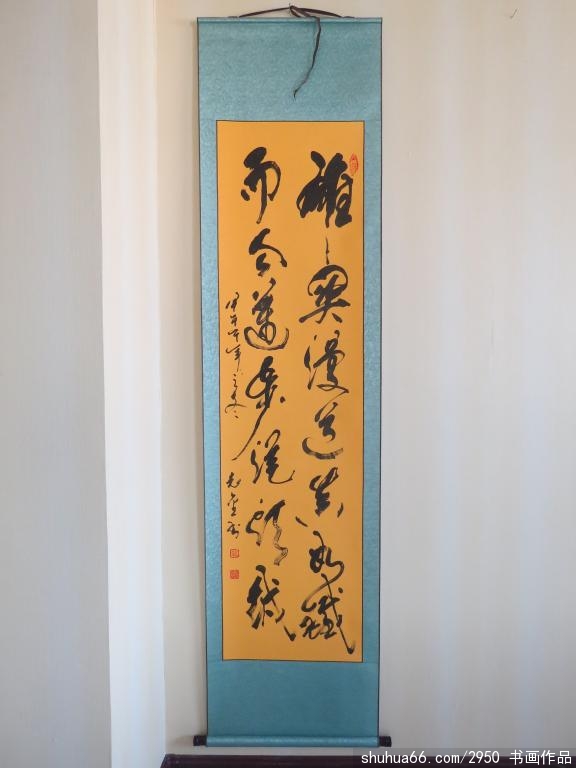 雄关漫道真如铁
而今迈步从头越
甲午年之冬
shuhua66.com/2950 书画作品